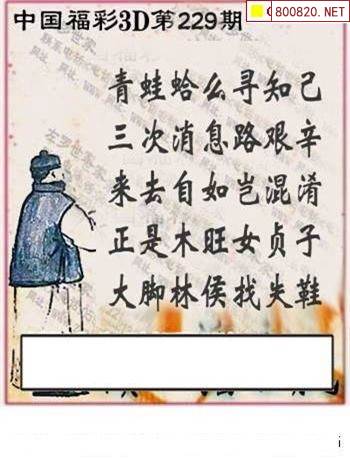 中国福彩3D第229期
800820.NET
青蛙蛤么寻知己
三次消息路艰辛
来去自如岂混淆
正是木旺女贞子
大脚林侯找失鞋